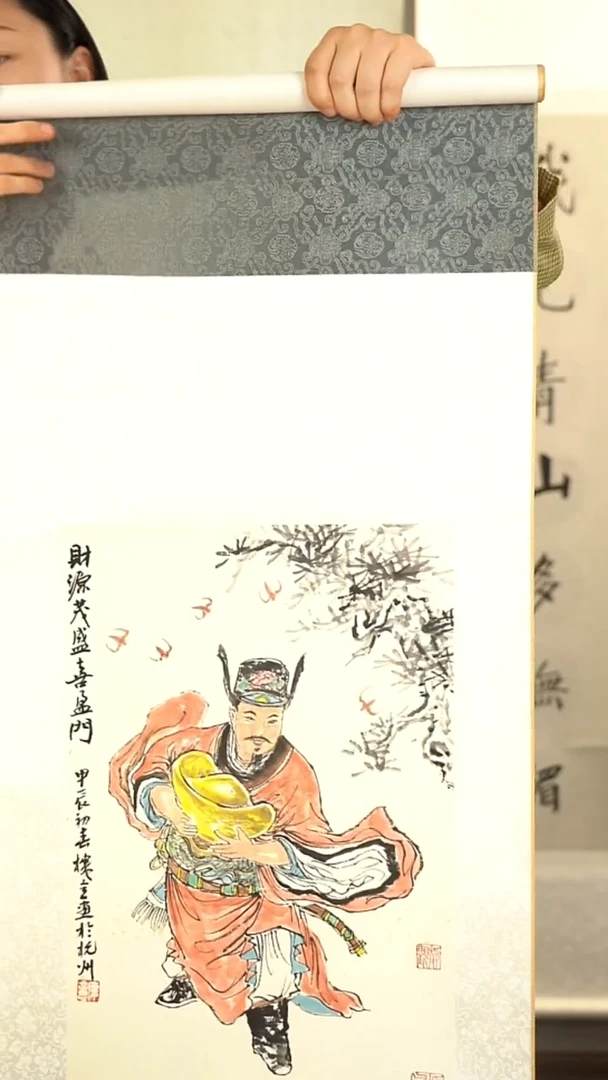 財源茂盛喜盈門
甲辰初春樓立畫於杭州
青山多無